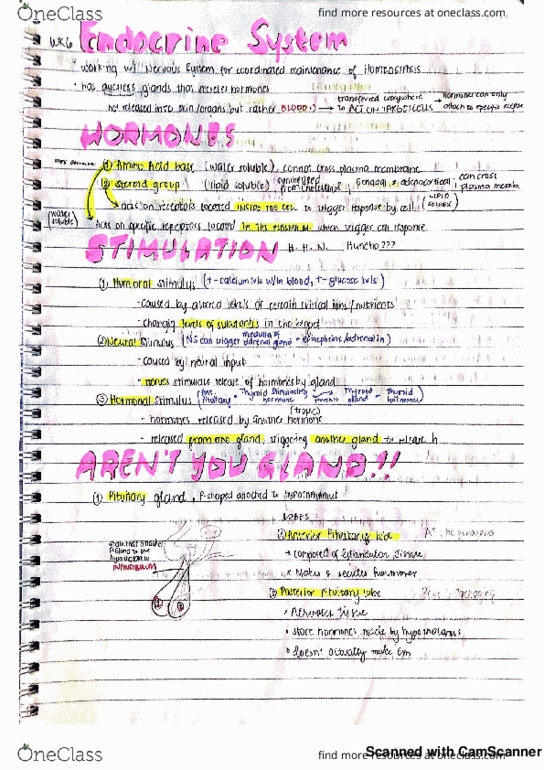 OneClass
find more resources at oneclass.com
WK6 Endocrine System
· Working w/ Nervous System for coordinated maintenance of HOMEOSTASIS
· has ductless glands that secrete hormones
not released into skin/organs but rather BLOOD! → transferred everywhere to ACT ON TARGET CELLS → hormones can only attach to specific
HORMONES
① Amino Acid base (water soluble), cannot cross plasma membrane
② steroid group (lipid soluble) synthesized from cholesterol gonadal & adrenocortical can cross plasma memb
↳ acts on receptors located INSIDE THE CELL to trigger response by cell (LIPID SOLUBLE)
(water soluble) Acts on specific receptors located in the plasma M. which trigger cell response
STIMULATION H. H. N. Huncho???
① Humoral stimulus (↑-calcium lvls w/in blood, ↑-glucose lvls)
- caused by altered levels of certain critical ions/nutrients
- changing levels of substances in the blood
② Neural Stimulus (NS can trigger medulla of adrenal gland - epinephrine/adrenalin)
- caused by neural input
- nerves stimulate release of hormones by gland
③ Hormonal stimulus Thyroid stimulating hormone Thyroid gland Thyroid hormones
(tropic)
- hormones released by another hormone
- released from one gland, triggering another gland to release h
AREN'T YOU GLAND!!
① Pituitary gland, P-shaped attached to hypothalamus
LOBES:
① Anterior Pituitary lobe
→ composed of glandular tissue
Makes & secretes hormones
INFUNDIBULUM
② Posterior Pituitary lobe
• Nervous tissue
• store hormones made by hypothalamus
• doesn't actually make em
OneClass
find more resources at oneclass.com
Scanned with CamScanner